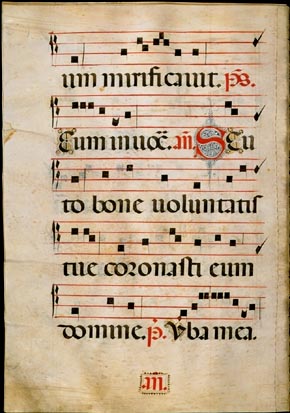 um mirificavit. ps.
Cum invoc. an. Scu
to bone voluntatis
tue coronasti eum
domine. p. Vba mea.
.m.